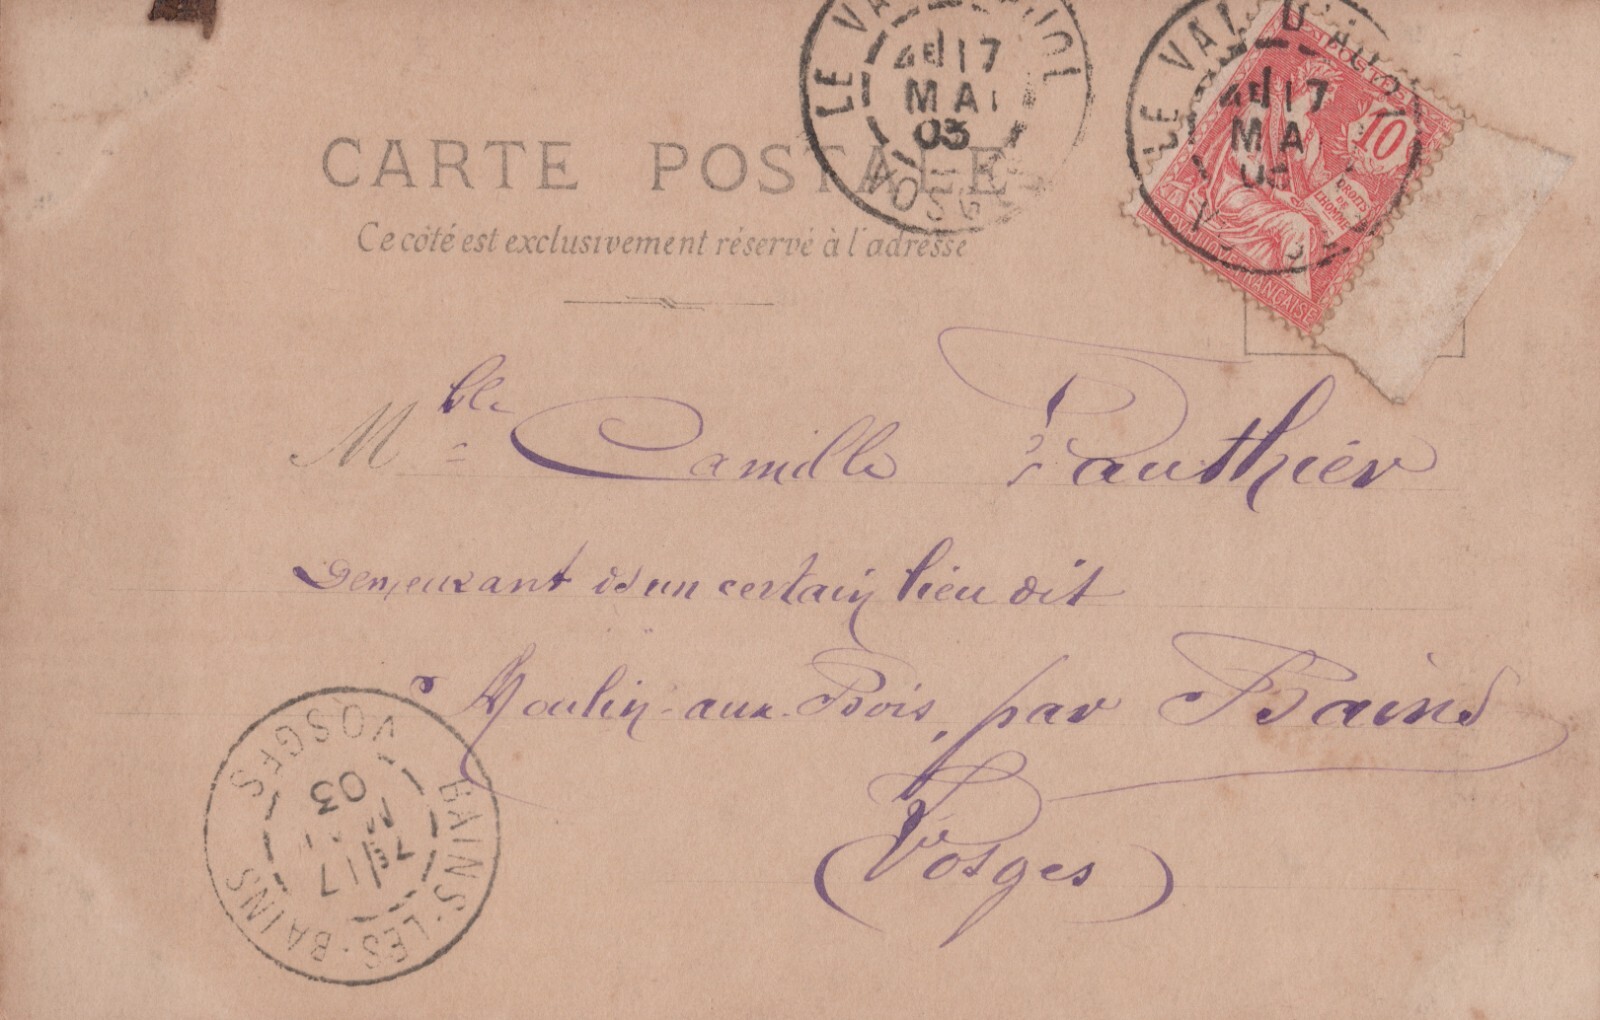 CARTE POSTALE
Ce côté est exclusivement réservé à l'adresse
LE VAL D'AJOL
4E 17
MAI
03
VOSGES
LE VAL D'AJOL
4E 17
MA
POSTES
10
DROITS
DE
L'HOMME
REPUBLIQUE FRANÇAISE
Mlle Camille Pauthier
Demeurant à un certain lieu dit
Moulin-aux-Bois, par Bains
(Vosges)
BAINS-LES-BAINS
7E 17
03
VOSGES